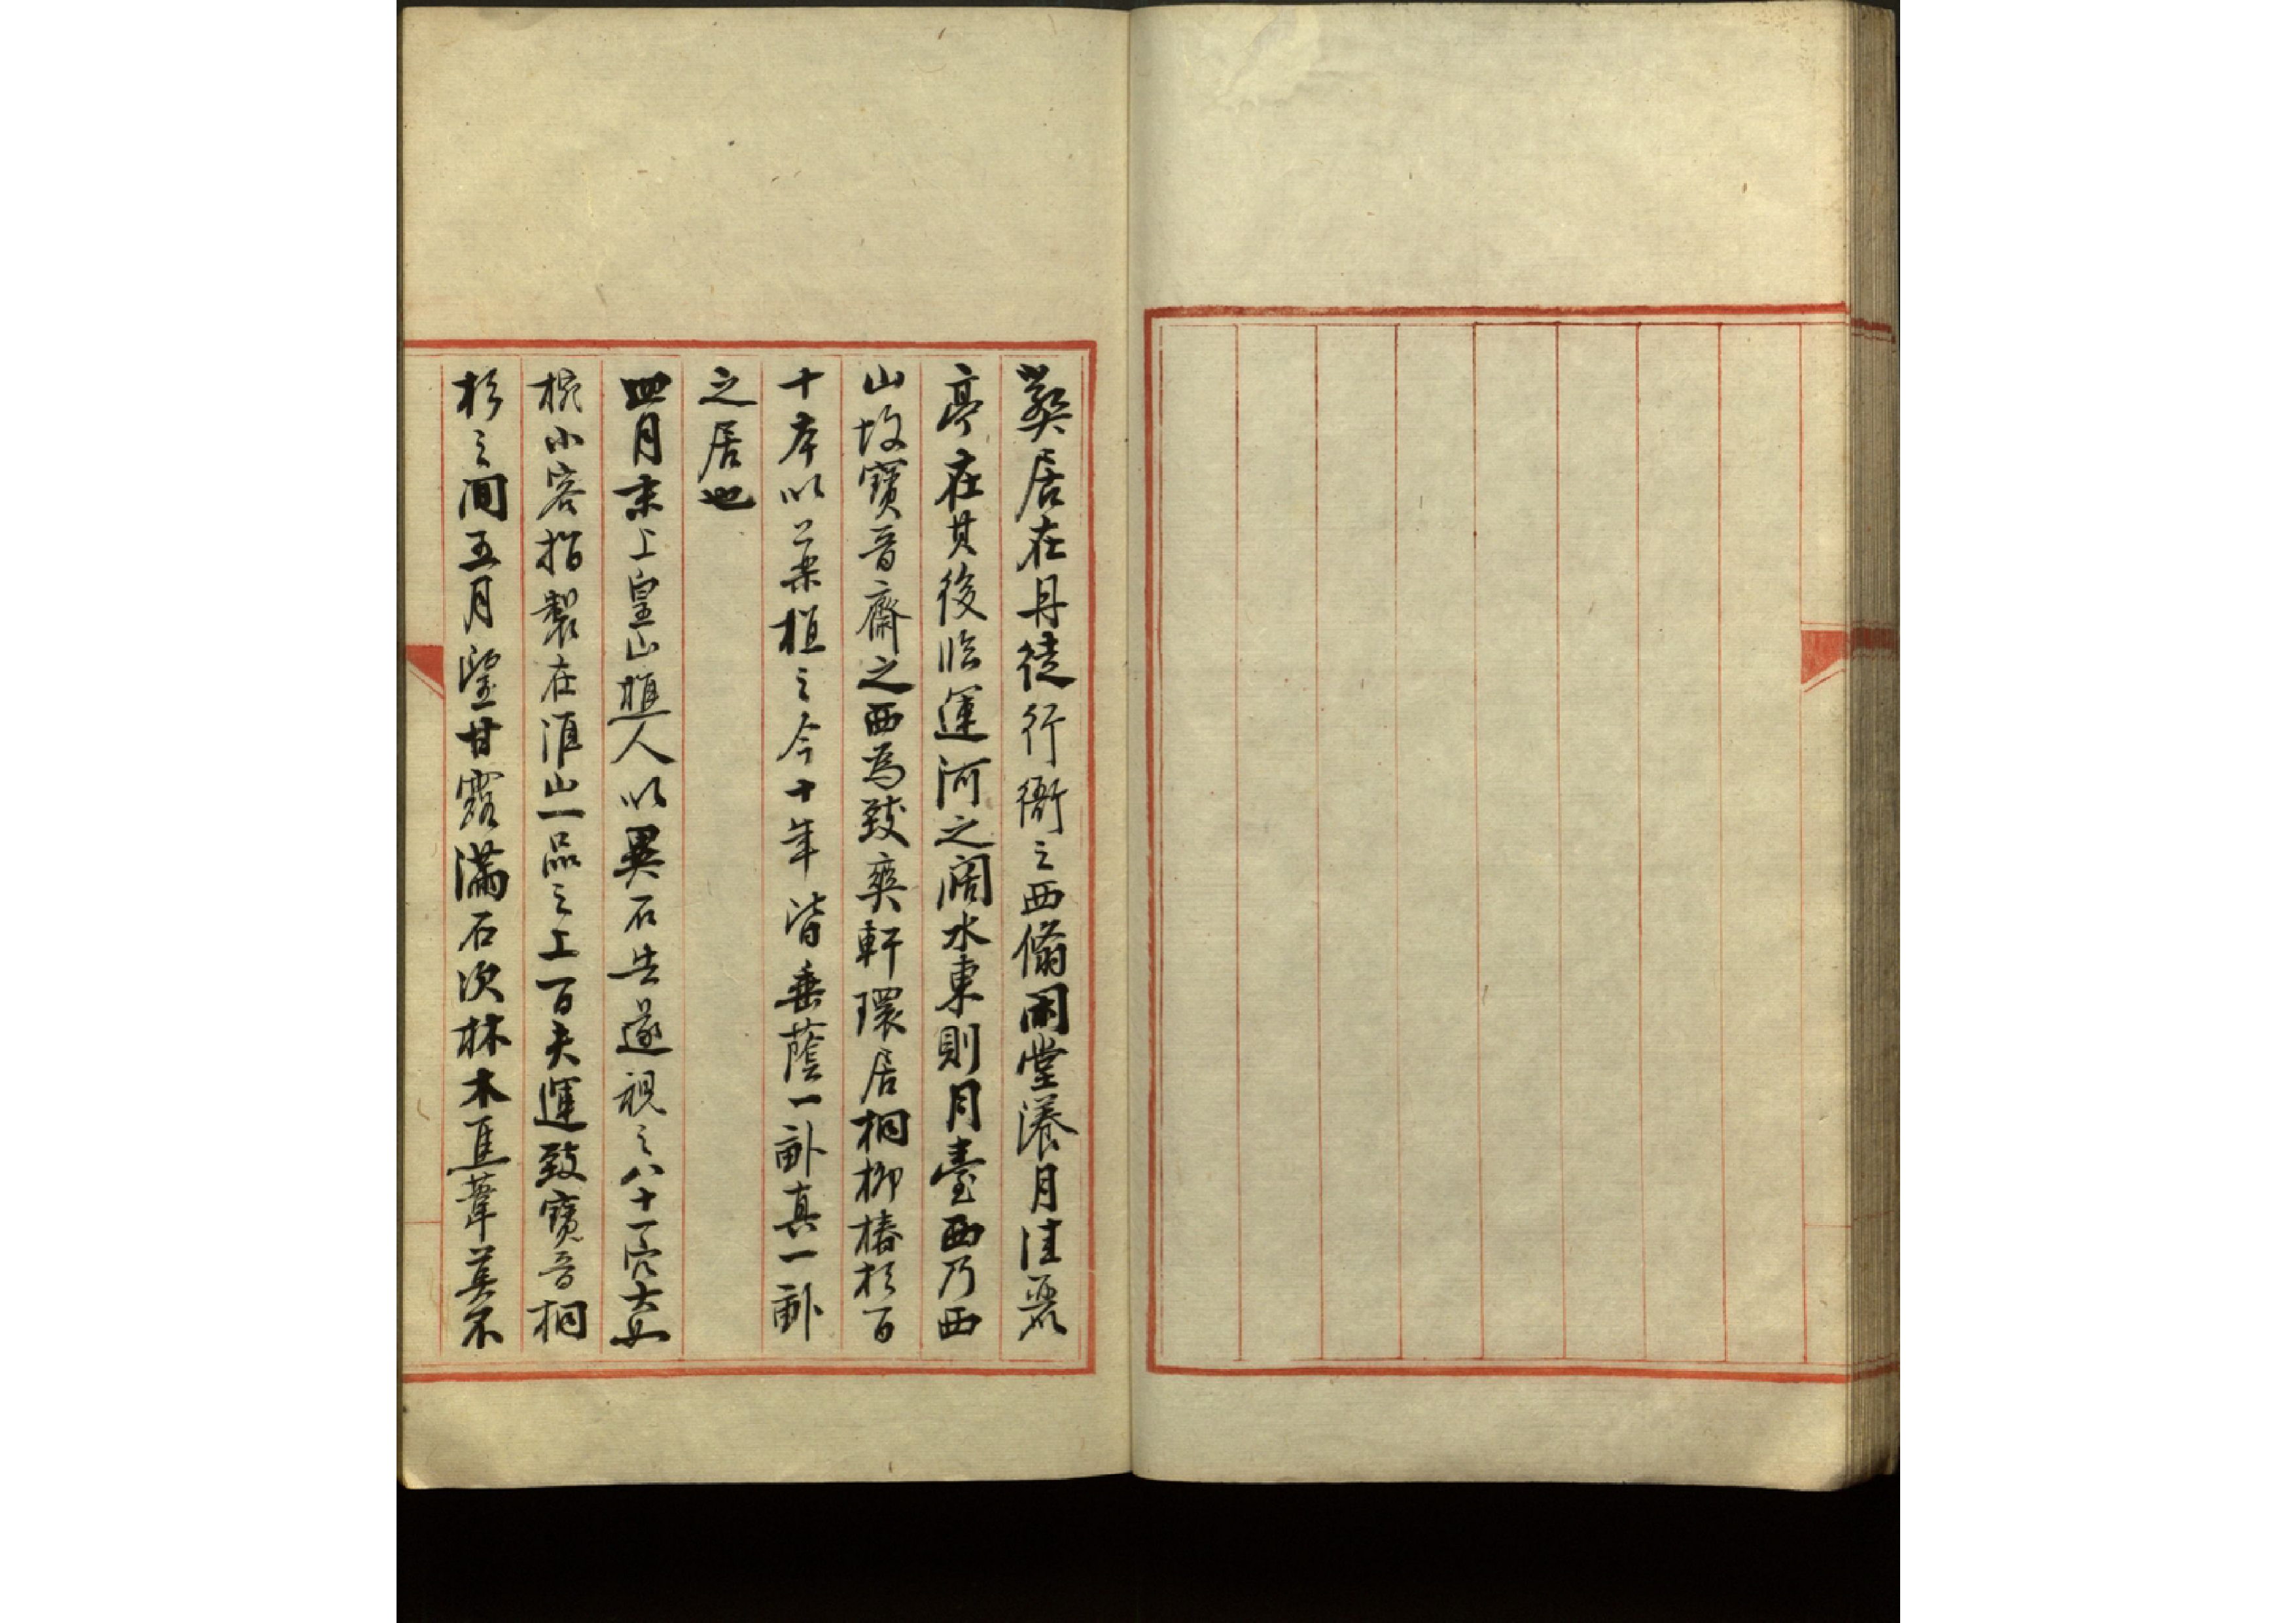 弊居在丹徒行衙之西翛閑堂漾月佳麗
亭在其後臨運河之闊水東則月臺西乃西
山故寶晉齋之西為致爽軒環居桐柳椿杉百
十本以藥植之今十年皆垂蔭一畝真一畝
之居也
四月末上皇山樵人以異石告遂視之八十一穴大如
椀小容指製在淮山一品之上百夫運致寶晉桐
杉之間五月望甘露滿石次林木焦葦莫不